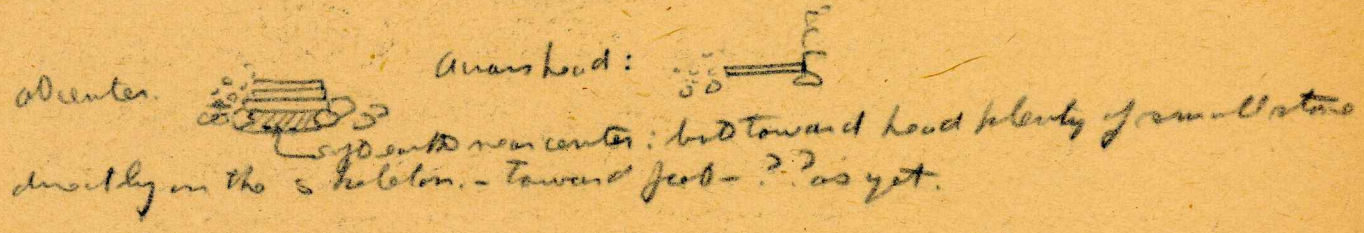 at center. Arrow head:
soft earth near center: but toward head plenty of small stone
directly on the skeleton. - Toward feet - ?? as yet.